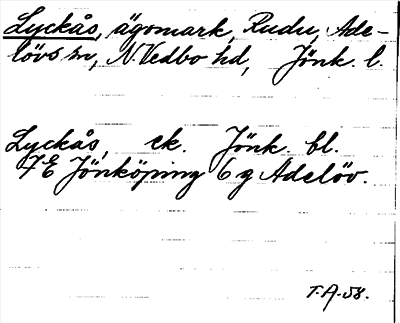 Lyckås, ägomark, Rudu, Ade-
lövs sn, N. Vedbo hd, Jönk. l.
Lyckås, ek. Jönk. bl.
7E Jönköping 6 g Adelöv.
T.A.58.